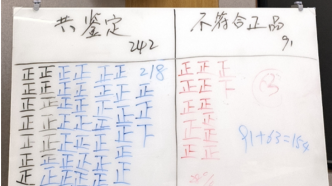 共鉴定
242
不符合正品
91
正正 正正 正正 218
正正 正正 正正 正
正正 正正 正正 正
正正 正正 正正 正
正正 正正 正正 下
正正 正正 正正
正正 正正 正正
正正 正正 正正
正正 正正
正正正
正正下
正正
正正
正正
正正
正正
91+63=154